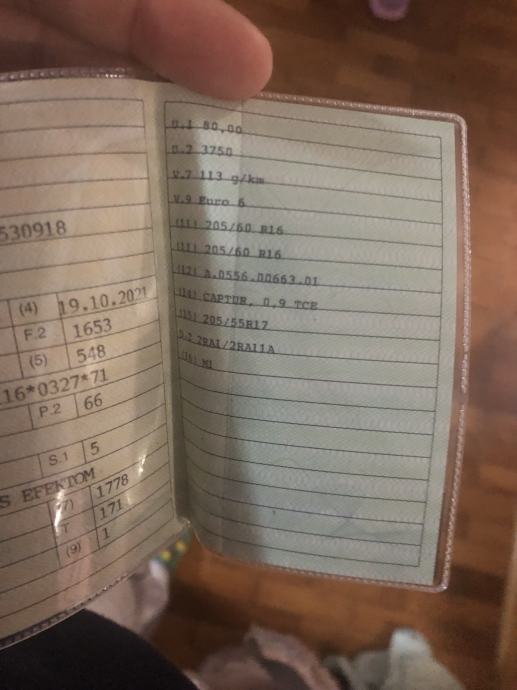 530918
(4) 19.10.2021
F.2 1653
(5) 548
16*0327*71
P.2 66
S.1 5
S EFEKTOM
(7) 1778
T 171
(9) 1
U.1 80,00
U.2 3750
V.7 113 g/km
V.9 Euro 6
(11) 205/60 R16
(11) 205/60 R16
(12) A.0556.00663.01
(14) CAPTUR, 0,9 TCE
(15) 205/55R17
D.2 2RA1/2RA11A
(16) M1